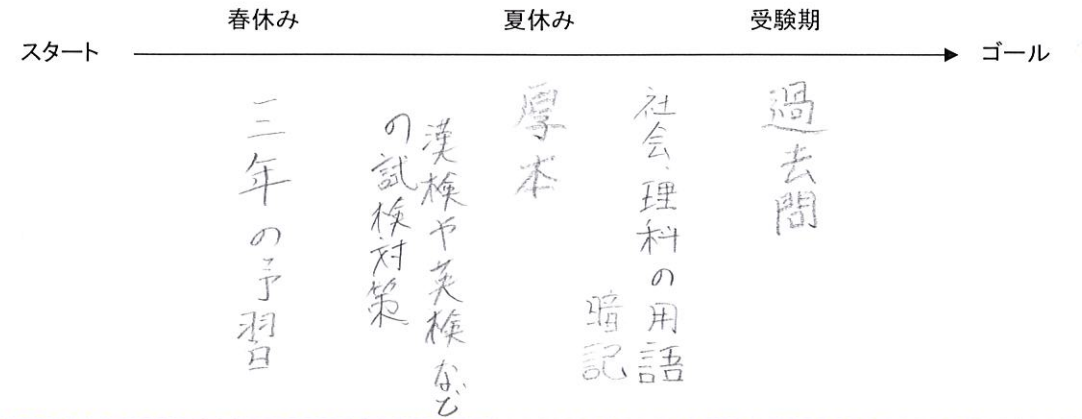 春休み
夏休み
受験期
スタート
ゴール
三年の予習
漢検や英検など
の試検対策
厚本
社会、理科の用語
暗記
過去問